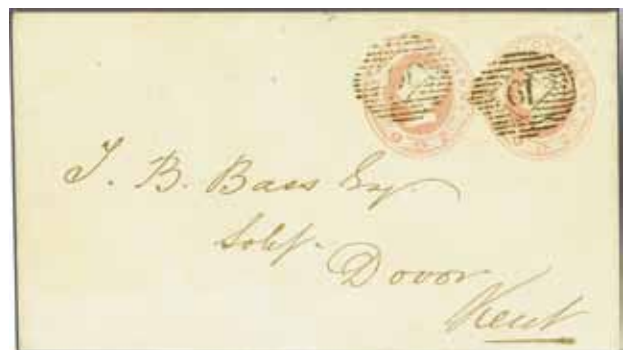 19
T. B. Bass Esq.
Solr.
Dovor
Kent